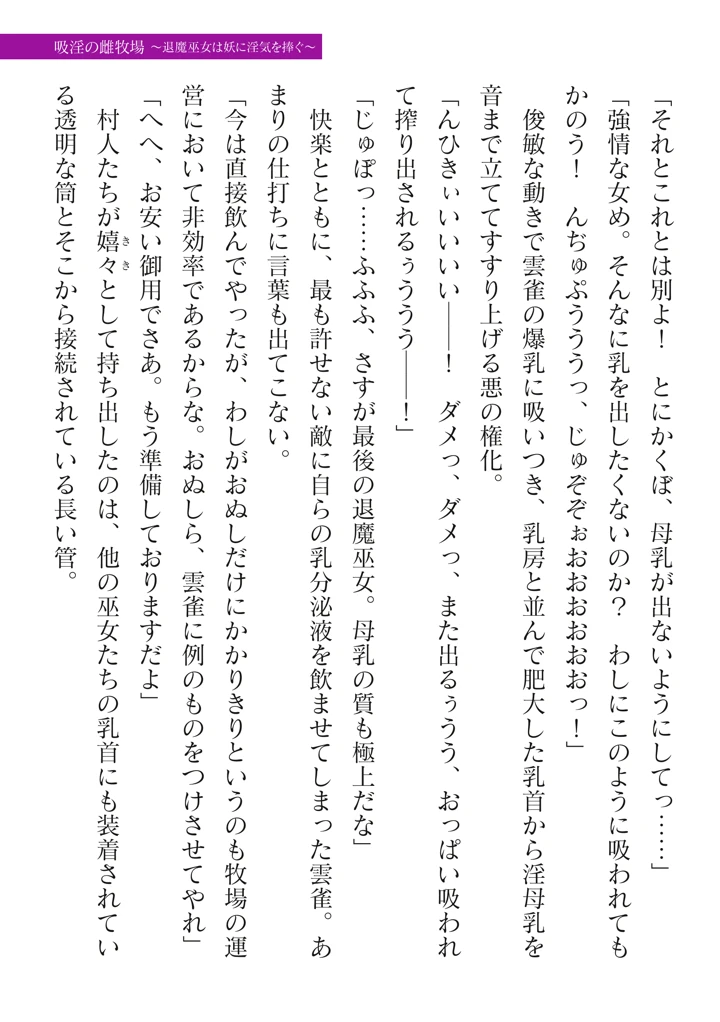 吸淫の雌牧場 ～退魔巫女は妖に淫気を捧ぐ～
「それとこれとは別よ！　とにかくぼ、母乳が出ないようにしてっ……」
「強情な女め。そんなに乳を出したくないのか？　わしにこのように吸われても
かのう！　んぢゅぷううっ、じゅぞぞぉおおおおおおっ！」
　俊敏な動きで雲雀の爆乳に吸いつき、乳房と並んで肥大した乳首から淫母乳を
音まで立ててすすり上げる悪の権化。
「んひきぃいいいい――！　ダメっ、ダメっ、また出るぅうう、おっぱい吸われ
て搾り出されるぅううう――！」
「じゅぽっ……ふふふ、さすが最後の退魔巫女。母乳の質も極上だな」
　快楽とともに、最も許せない敵に自らの乳分泌液を飲ませてしまった雲雀。あ
まりの仕打ちに言葉も出てこない。
「今は直接飲んでやったが、わしがおぬしだけにかかりきりというのも牧場の運
営において非効率であるからな。おぬしら、雲雀に例のものをつけさせてやれ」
「へへ、お安い御用でさあ。もう準備しておりますだよ」
　村人たちが嬉々ききとして持ち出したのは、他の巫女たちの乳首にも装着されてい
る透明な筒とそこから接続されている長い管。